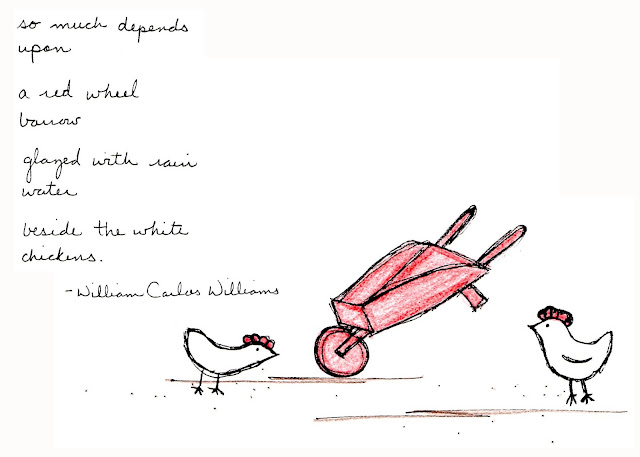 so much depends
upon
a red wheel
barrow
glazed with rain
water
beside the white
chickens.
-William Carlos Williams